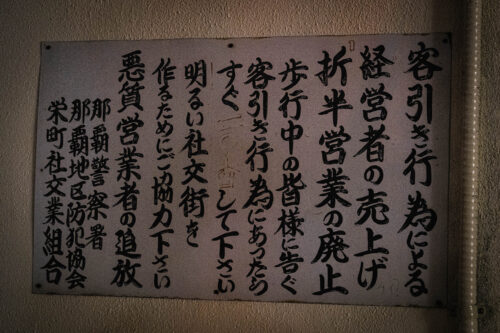 客引き行為による
経営者の売上げ
折半営業の廃止
歩行中の皆様に告ぐ
客引き行為にあったら
すぐ して下さい
明るい社交街を
作るためにご協力下さい
悪質営業者の追放
那覇警察署
那覇地区防犯協会
栄町社交業組合